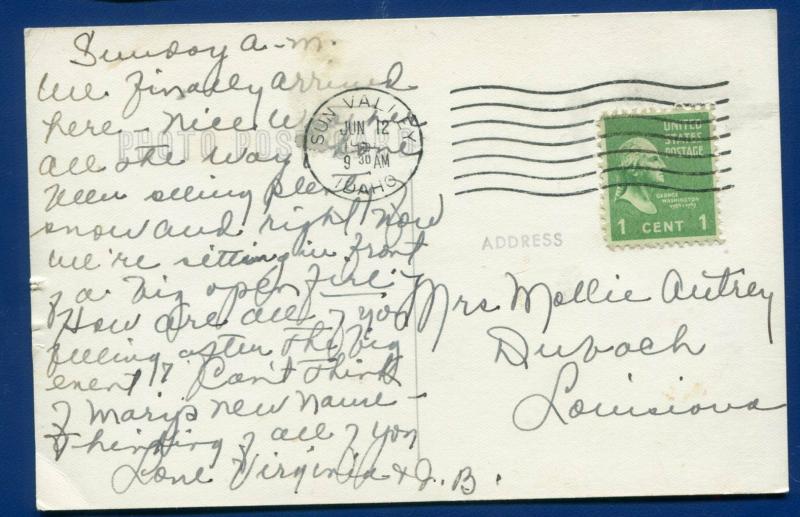 Sunday a-m.
We finally arrived
here - nice weather
all the way have
been seeing plenty
snow and right now
we're sitting in front
of a big open fire -
How are all of you
feeling after the big
event? Can't think
of Mary's new name -
Thinking of all of you
Love Virginia & J. B.
PHOTO POST CARD
SUN VALLEY
JUN 12
9 30 AM
IDAHO
UNITED
STATES
POSTAGE
GEORGE
WASHINGTON
1789-1797
1 CENT 1
ADDRESS
Mrs Mollie Autrey
Dubach
Louisiana